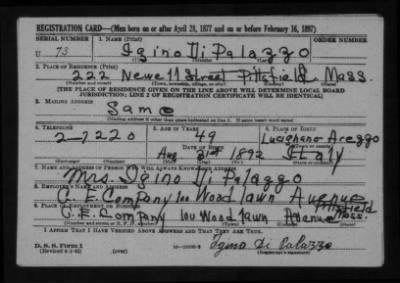 REGISTRATION CARD—(Men born on or after April 28, 1877 and on or before February 16, 1897)
SERIAL NUMBER 1. NAME (Print) ORDER NUMBER
U 73 Igino Di Palazzo
2. PLACE OF RESIDENCE (Print)
222 Newell Street Pittsfield Mass.
[THE PLACE OF RESIDENCE GIVEN ON THE LINE ABOVE WILL DETERMINE LOCAL BOARD
JURISDICTION; LINE 2 OF REGISTRATION CERTIFICATE WILL BE IDENTICAL]
3. MAILING ADDRESS
Same
[Mailing address if other than place indicated on line 2. If same insert word same]
4. TELEPHONE 5. AGE IN YEARS 6. PLACE OF BIRTH
2-7220 49 Arezzo
DATE OF BIRTH
Aug 31st 1892 Italy
7. NAME AND ADDRESS OF PERSON WHO WILL ALWAYS KNOW YOUR ADDRESS
Mrs. Igino Di Palazzo
8. EMPLOYER'S NAME AND ADDRESS
G. E. Company 100 Woodlawn Avenue
9. PLACE OF EMPLOYMENT OR BUSINESS Pittsfield
G. E. Company 100 Woodlawn Avenue Mass.
I AFFIRM THAT I HAVE VERIFIED ABOVE ANSWERS AND THAT THEY ARE TRUE.
D. S. S. Form 1 Igino Di Palazzo
(Revised 4-1-42) (over) (Registrant's signature)